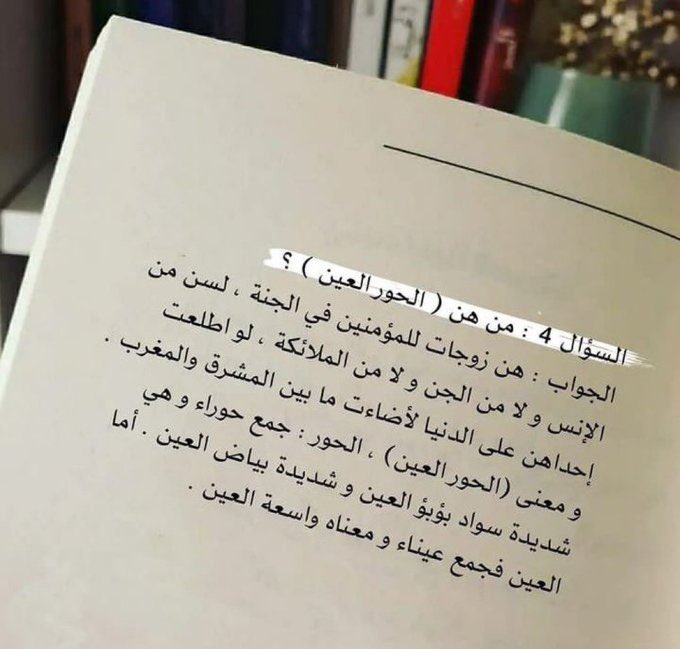 السؤال 4 : من هن ( الحور العين ) ؟
الجواب : هن زوجات للمؤمنين في الجنة ، لسن من
الإنس و لا من الجن و لا من الملائكة ، لو اطلعت
إحداهن على الدنيا لأضاءت ما بين المشرق والمغرب .
و معنى (الحور العين) ، الحور : جمع حوراء و هي
شديدة سواد بؤبؤ العين و شديدة بياض العين . أما
العين فجمع عيناء و معناه واسعة العين .